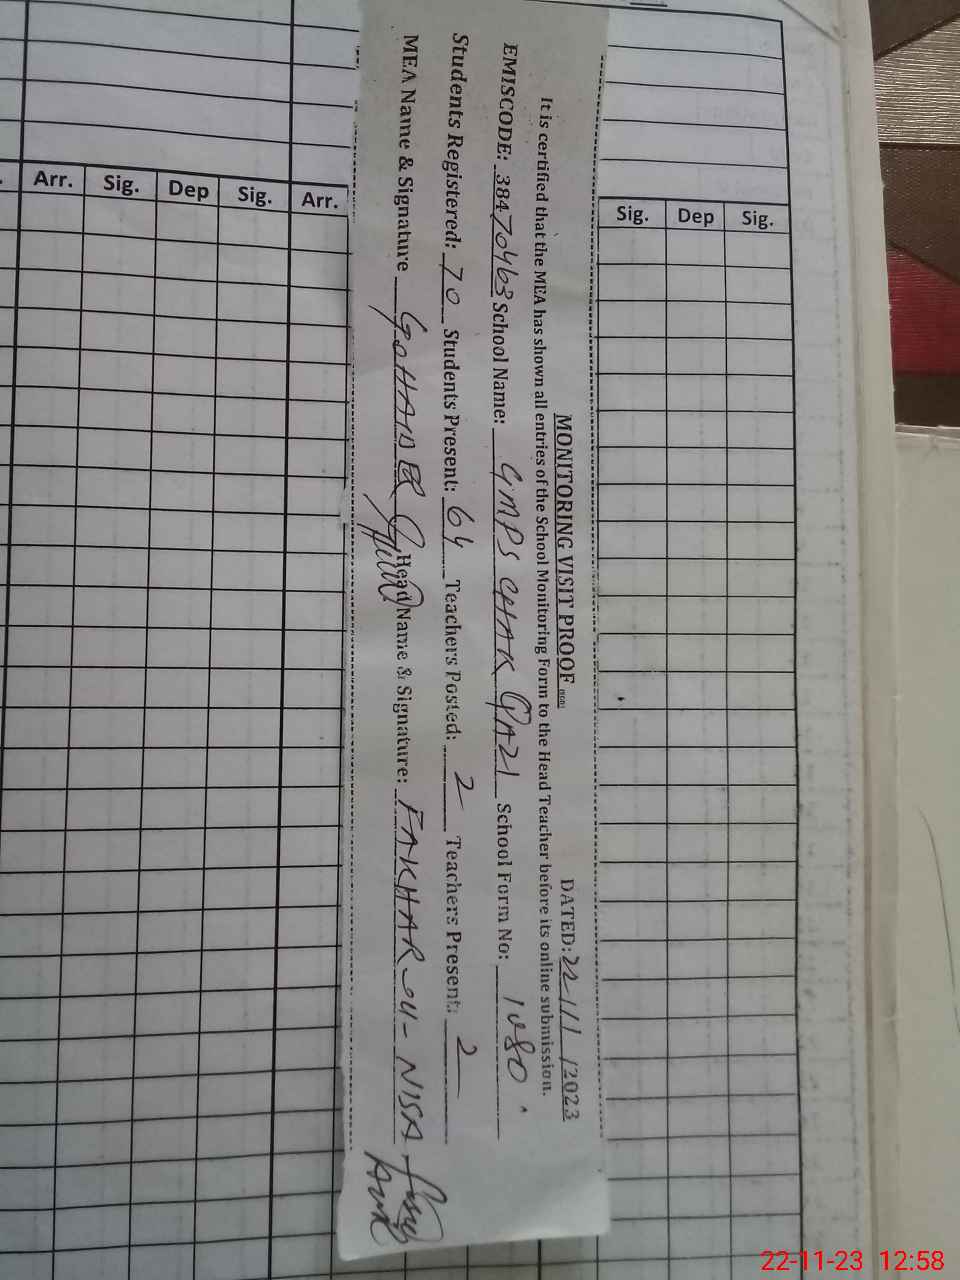 MONITORING VISIT PROOF DATED: 22/11/2023
It is certified that the MEA has shown all entries of the School Monitoring Form to the Head Teacher before its online submission.
EMISCODE: 38470463 School Name: GMPS CHAK QAZI School Form No: 1080
Students Registered: 70 Students Present: 64 Teachers Posted: 2 Teachers Present: 2
MEA Name & Signature G. HAIDER Head Name & Signature: FAKHAR-U-NISA
Arr. Sig. Dep Sig. Arr. Sig. Dep Sig.
22-11-23 12:58